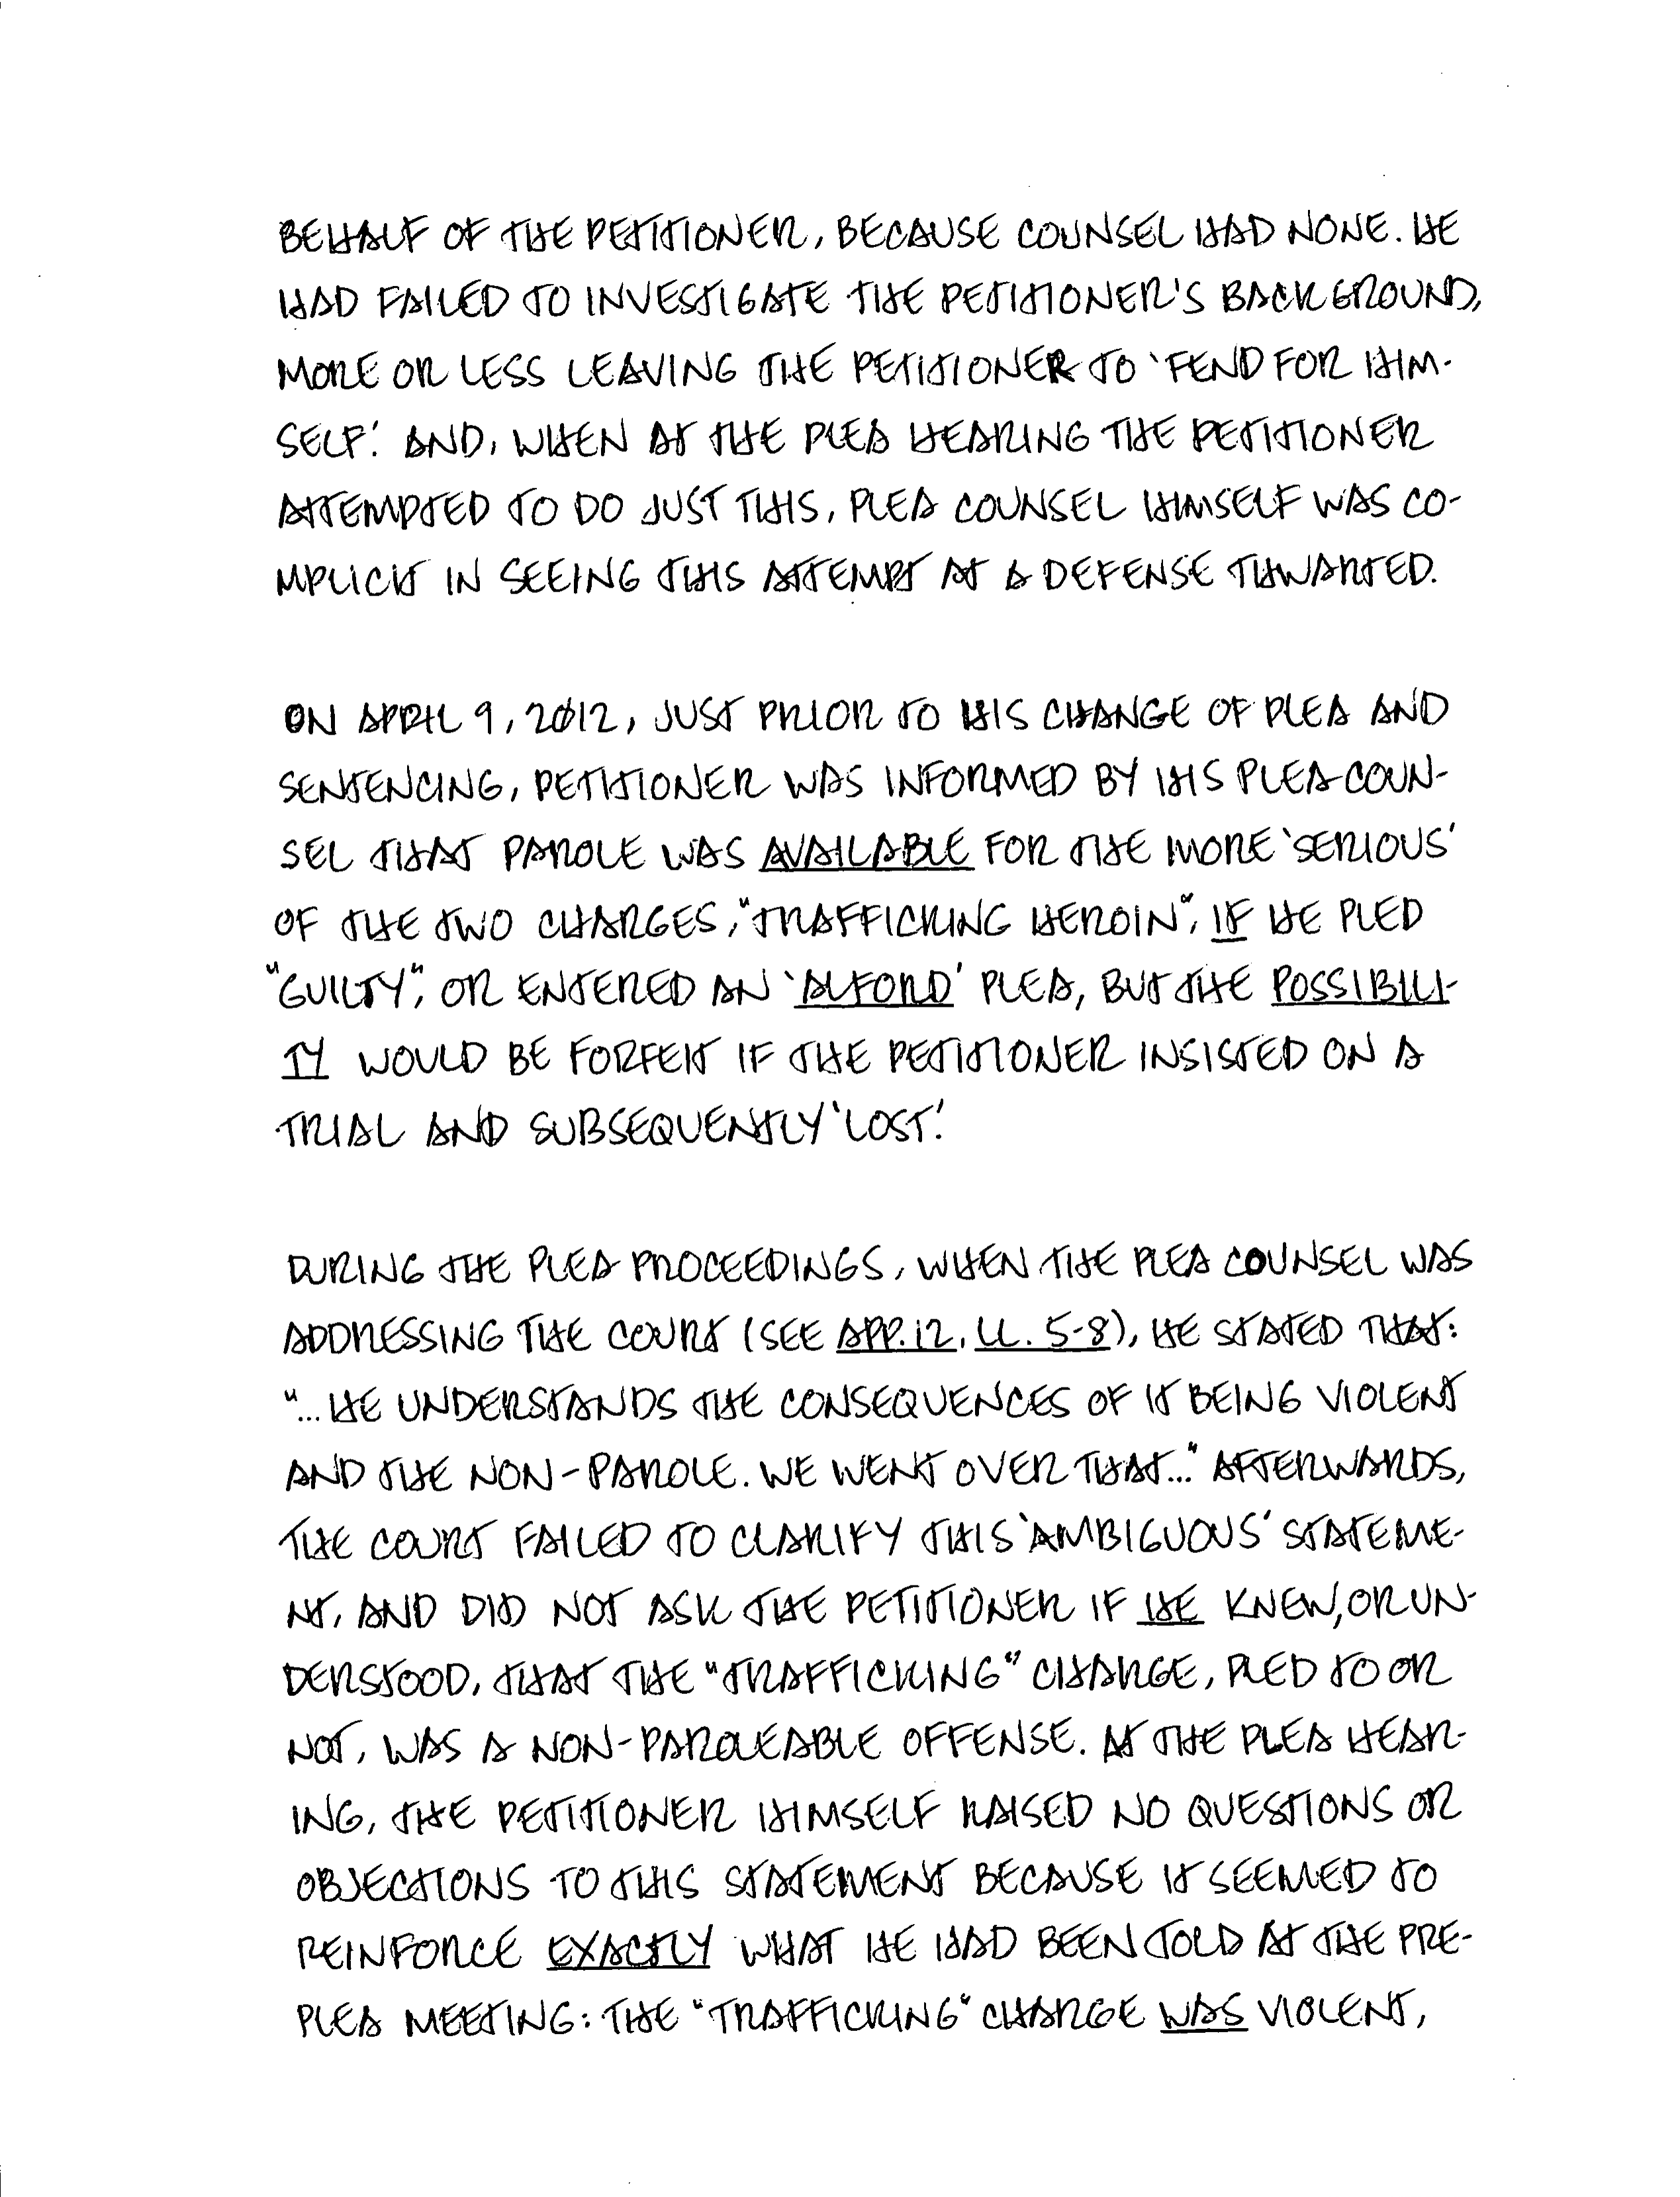 BEHALF OF THE PETITIONER, BECAUSE COUNSEL HAD NONE. HE
HAD FAILED TO INVESTIGATE THE PETITIONER'S BACKGROUND,
MORE OR LESS LEAVING THE PETITIONER TO 'FEND FOR HIM-
SELF.' AND, WHEN AT THE PLEA HEARING THE PETITIONER
ATTEMPTED TO DO JUST THIS, PLEA COUNSEL HIMSELF WAS CO-
MPLICIT IN SEEING THIS ATTEMPT AT A DEFENSE THWARTED.
ON APRIL 9, 2012, JUST PRIOR TO HIS CHANGE OF PLEA AND
SENTENCING, PETITIONER WAS INFORMED BY HIS PLEA COUN-
SEL THAT PAROLE WAS AVAILABLE FOR THE MORE 'SERIOUS'
OF THE TWO CHARGES, "TRAFFICKING HEROIN", IF HE PLED
"GUILTY", OR ENTERED AN 'ALFORD' PLEA, BUT THE POSSIBILI-
TY WOULD BE FORFEIT IF THE PETITIONER INSISTED ON A
TRIAL AND SUBSEQUENTLY 'LOST.'
DURING THE PLEA PROCEEDINGS, WHEN THE PLEA COUNSEL WAS
ADDRESSING THE COURT (SEE APP. 12, LL. 5-8), HE STATED THAT:
"... HE UNDERSTANDS THE CONSEQUENCES OF IT BEING VIOLENT
AND THE NON-PAROLE. WE WENT OVER THAT..." AFTERWARDS,
THE COURT FAILED TO CLARIFY THIS 'AMBIGUOUS' STATEME-
NT, AND DID NOT ASK THE PETITIONER IF HE KNEW, OR UN-
DERSTOOD, THAT THE "TRAFFICKING" CHARGE, PLED TO OR
NOT, WAS A NON-PAROLEABLE OFFENSE. AT THE PLEA HEAR-
ING, THE PETITIONER HIMSELF RAISED NO QUESTIONS OR
OBJECTIONS TO THIS STATEMENT BECAUSE IT SEEMED TO
REINFORCE EXACTLY WHAT HE HAD BEEN TOLD AT THE PRE-
PLEA MEETING: THE "TRAFFICKING" CHARGE WAS VIOLENT,